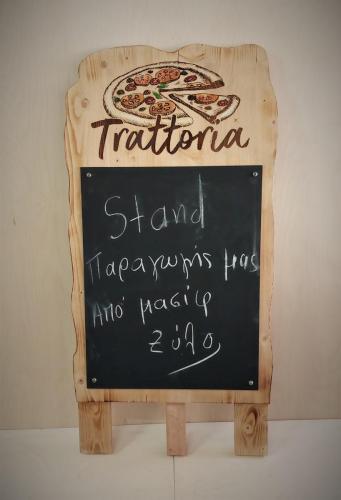 Trattoria
Stand
Παραγωγής μας
Από μασίφ
Ξύλο